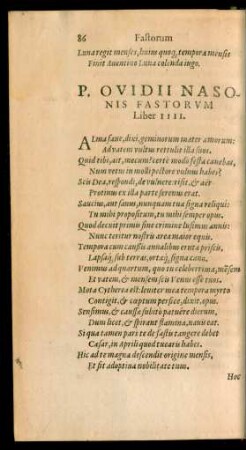 86 Fastorum
Luna regit menses, huius quoq, tempora mensis
Finit Auentino Luna colenda iugo.
P. OVIDII NASO-
NIS FASTORVM
Liber IIII.
ALma faue, dixi, geminorum mater amorum:
Ad vatem voltus rettulit illa suos.
Quid tibi, ait, mecum? certè modò festa canebas,
Num vetus in molli pectore volnus habes?
Scis Dea, respondi, de vulnere. risit, & aër
Protinus ex illa parte serenus erat.
Saucius, aut sanus, nunquam tua signa reliqui:
Tu mihi propositum, tu mihi semper opus.
Quod decuit primis sine crimine lusimus annis:
Nunc teritur nostris area maior equis.
Tempora cum caussis annalibus eruta priscis,
Lapsáq; sub terras, ortáq; signa cano.
Venimus ad quartum, quo tu celeberrima, mēsem
Et vatem, & mensem scis Venus esse tuos.
Mota Cytheriaca est: leuiter mea tempora myrto
Contigit, & cœptum perfice, dixit, opus.
Sensimus, & caussæ subitò patuêre dierum,
Dum licet, & spirant flamina, nauis eat.
Si qua tamen pars te de fastis tangere debet
Cæsar, in Aprili quod tuearis habes.
Hic ad te magna descendit origine mensis,
Et fit adoptiua nobilitate tuus.
Hoc